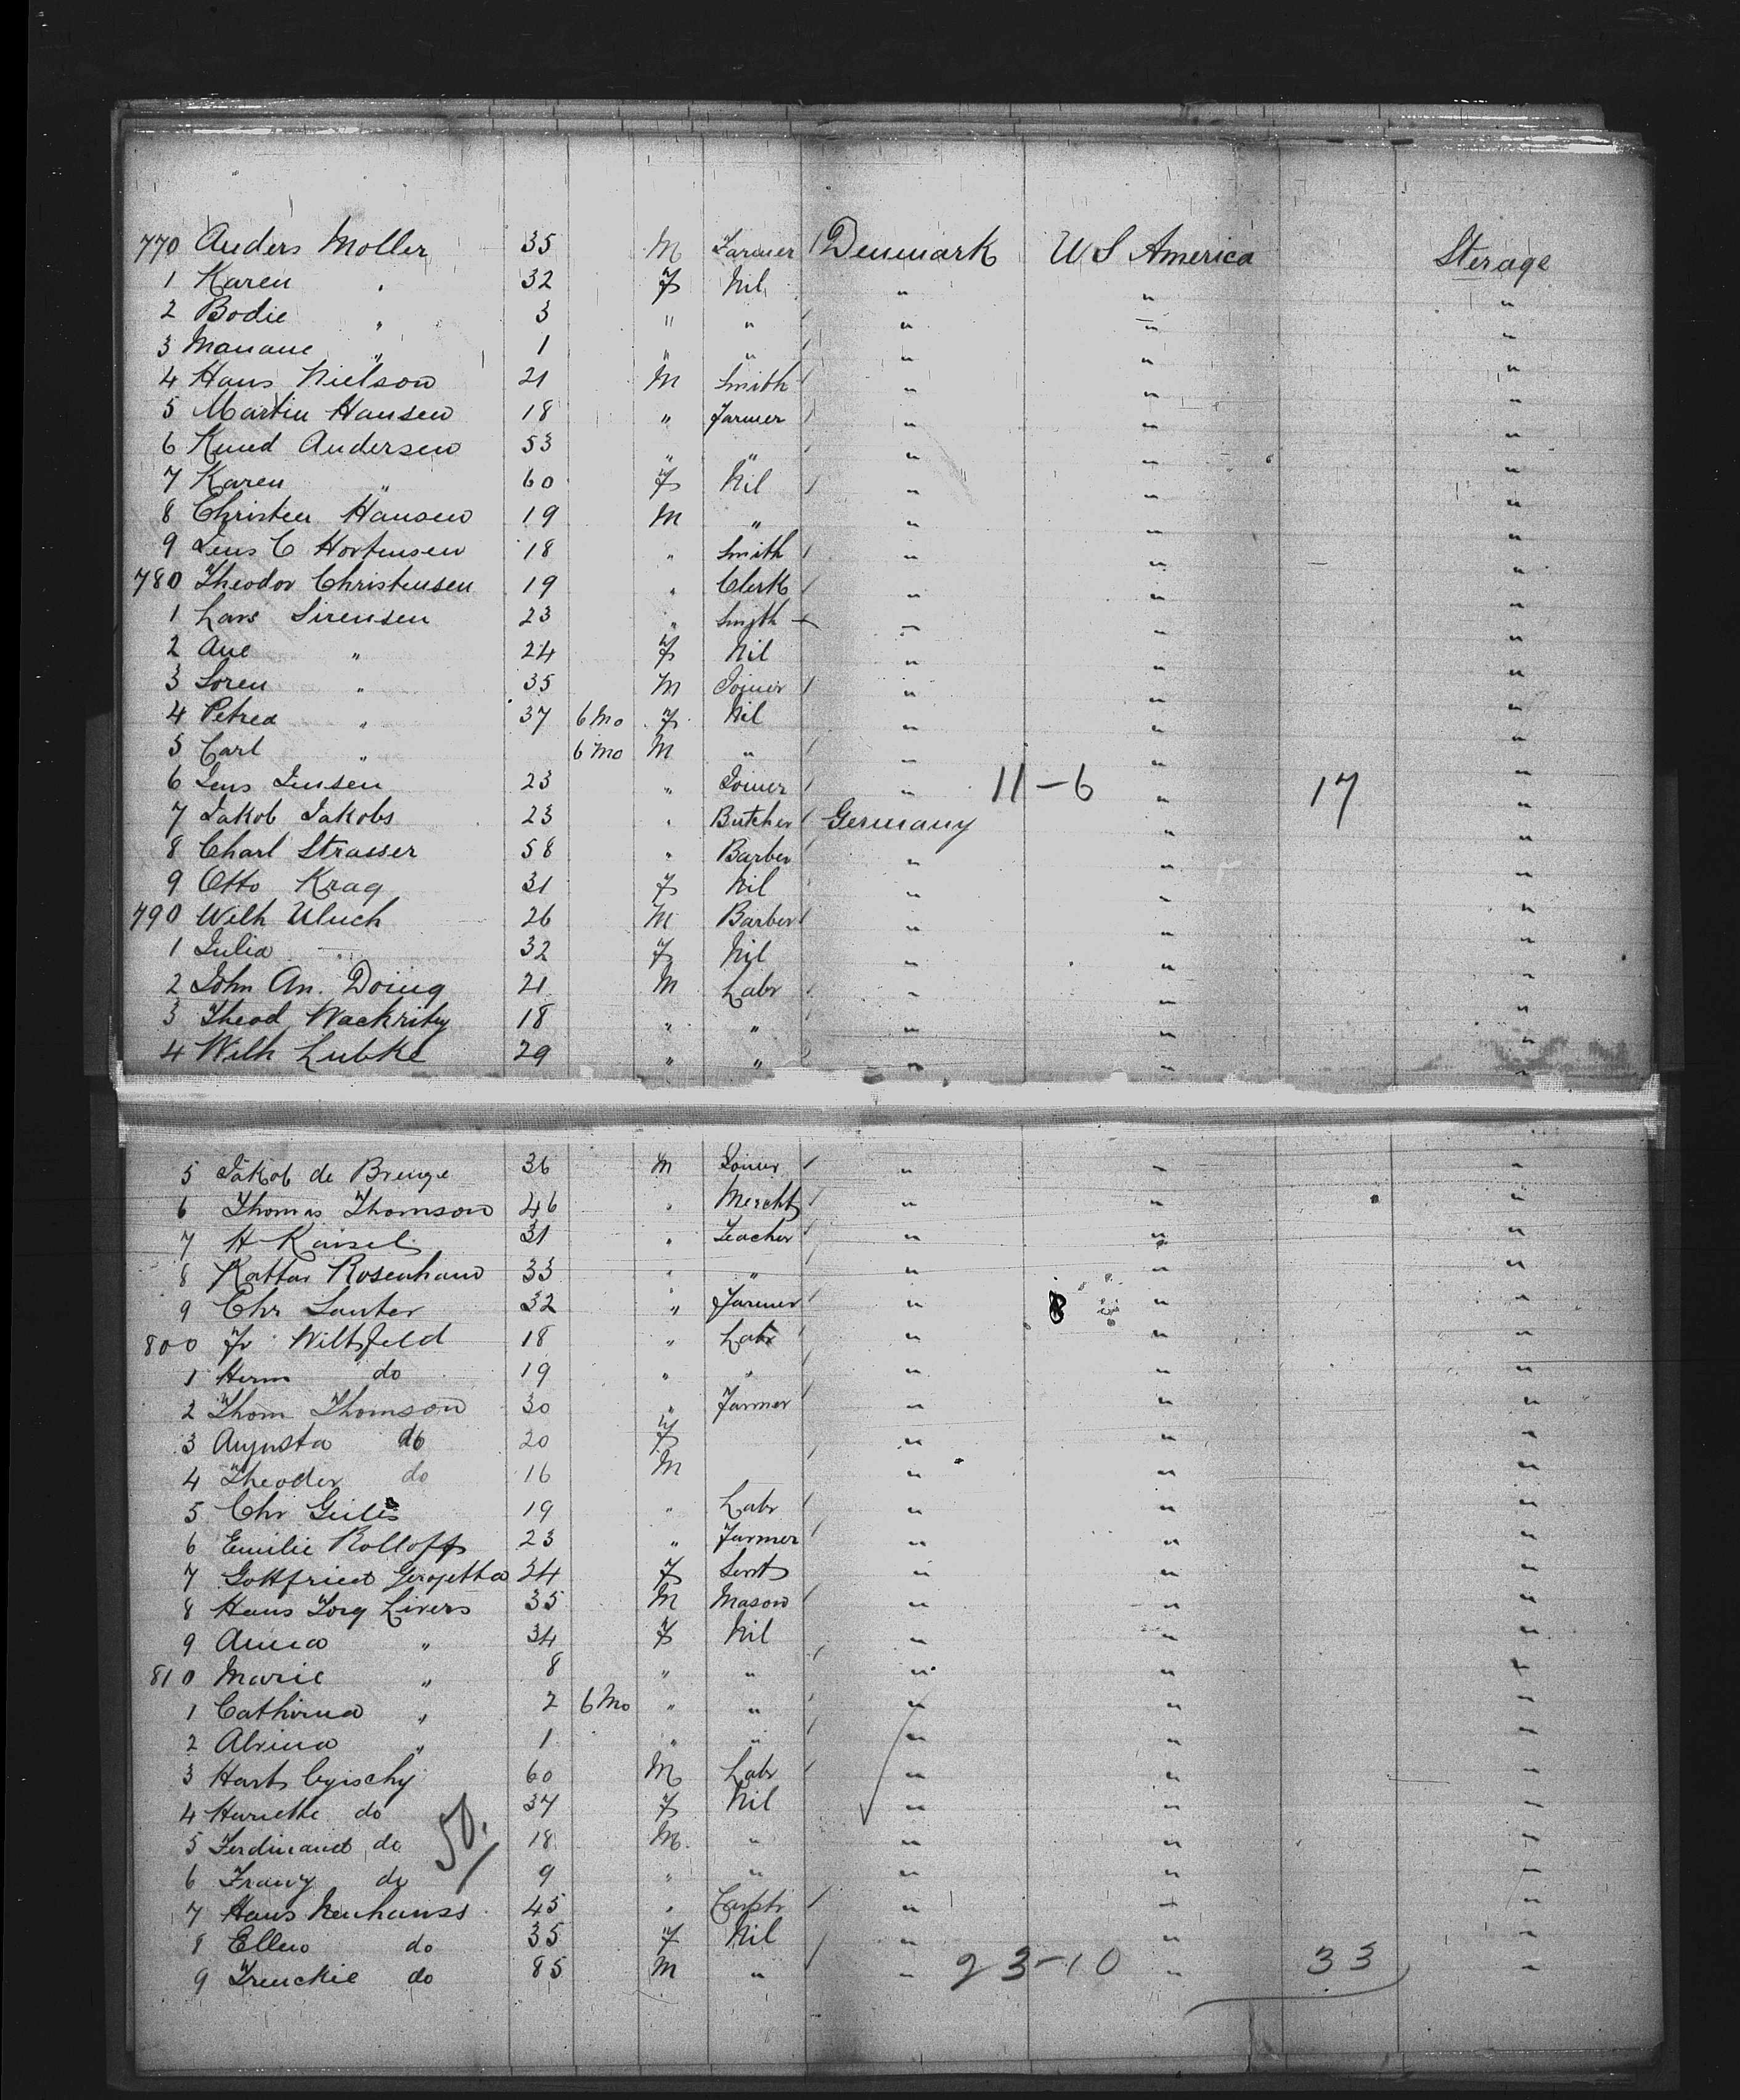 770 Anders Moller 35 M Farmer / Denmark U S America Sterage
1 Karen " 32 F Nil " " "
2 Bodie " 3 " " / " " "
3 Manane " 1 " " / " " "
4 Hans Nielson 21 M Smith / " " "
5 Martin Hansen 18 " Farmer / " " "
6 Knud Andersen 53 " " / " " "
7 Karen " 60 F Nil / " " "
8 Christen Hansen 19 M " " " "
9 Jens C Hortensen 18 " Smith / " " "
780 Theodor Christensen 19 " Clerk / " " "
1 Lars Sirensen 23 " Smith " " "
2 Ane " 24 F Nil " " "
3 Soren " 35 M Joiner / " " "
4 Petrea " 37 6 Mo F Nil " " "
5 Carl " 6 Mo M " / " " "
6 Jens Jensen 23 " Joiner / " 11-6 " 17 "
7 Jakob Jakobs 23 " Butcher / Germany " "
8 Charl Strasser 58 " Barber / " " "
9 Otto Krag 31 F Nil " " "
790 Wilh Uluch 26 M Barber / " " "
1 Julia " 32 F Nil " " "
2 John An. Doing 21 M Labr / " " "
3 Theod Wackrity 18 " " " " "
4 Wilh Lubke 29 " " " " "
5 Jakob de Breuge 36 M Joiner / " " "
6 Thomas Thomson 46 " Mercht / " " "
7 H Kaisel 31 " Teacher / " " "
8 Kattar Rosenhaun 33 " " / " " "
9 Chr Lauter 32 " Farmer / " 8 " "
800 Fr Wiltsfeld 18 " Labr " " "
1 Herm do 19 " " / " " "
2 Thom Thomson 30 " Farmer / " " "
3 Augusta do 20 F " " "
4 Theoder do 16 M / " " "
5 Chr Geiles 19 " Labr / " " "
6 Emilie Rolloff 23 " Farmer / " " "
7 Gottfried 24 F Servt " " "
8 Hans Jorg Livers 35 M Mason / " " "
9 Anna " 34 F Nil " " "
810 Marie " 8 " " / " " "
1 Cathrina " 2 6 Mo " " / " " "
2 Alvina " 1 " " / " " "
3 Hart Cyischy 60 M Labr / " " "
4 Henriette do 37 F Nil " " "
5 Ferdinand do 50. 18 M " " " "
6 Franz do 9 " " " " "
7 Hans Neuhauss 45 " Carptr / " " "
8 Ellen do 35 F Nil " " "
9 Trenckie do 85 M " / " 23-10 " 33 "